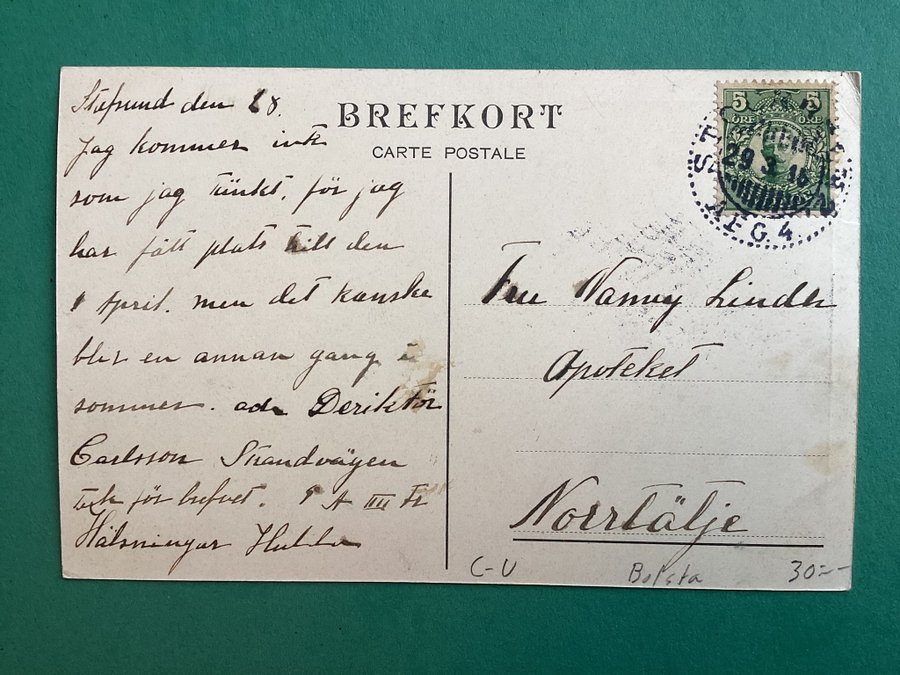 den 28.
BREFKORT
CARTE POSTALE
Jag kommer inte
som jag tänkt, för jag
har fått plats till den
1 April. men det kanske
blir en annan gang i
sommer. adr Deriktör
Carlsson Strandvägen
tak för brefvet. 1 A III Tr
Hälsningar
5 5
ÖRE ÖRE
29 3
A.F.G.4.
Fru Nanny Lindh
Apoteket
Norrtälje
C-U
30:--